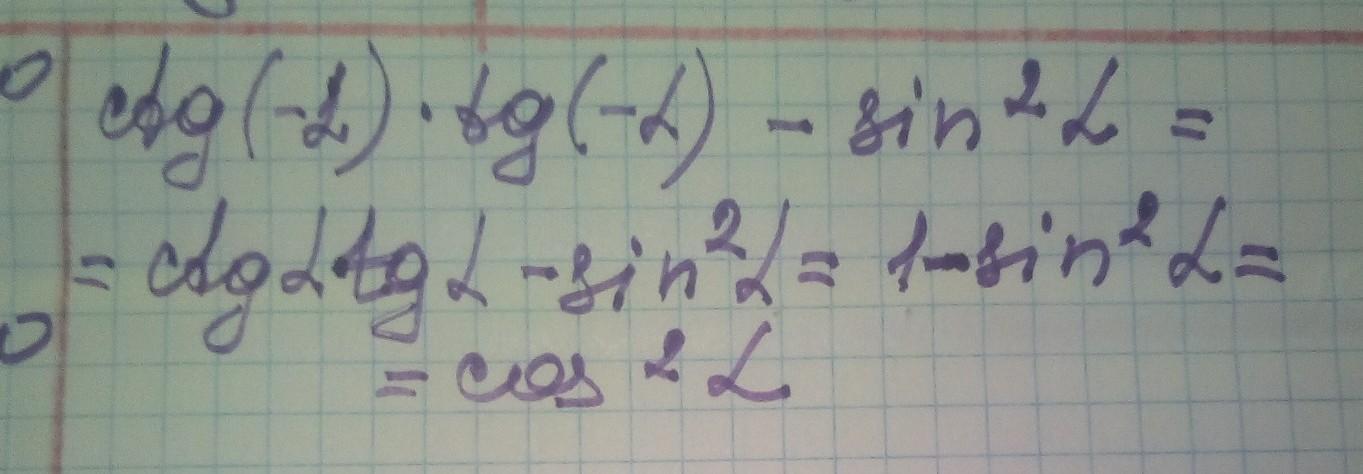 ctg(-α)·tg(-α) - sin²α =
= ctgα tgα - sin²α = 1-sin²α =
= cos²α